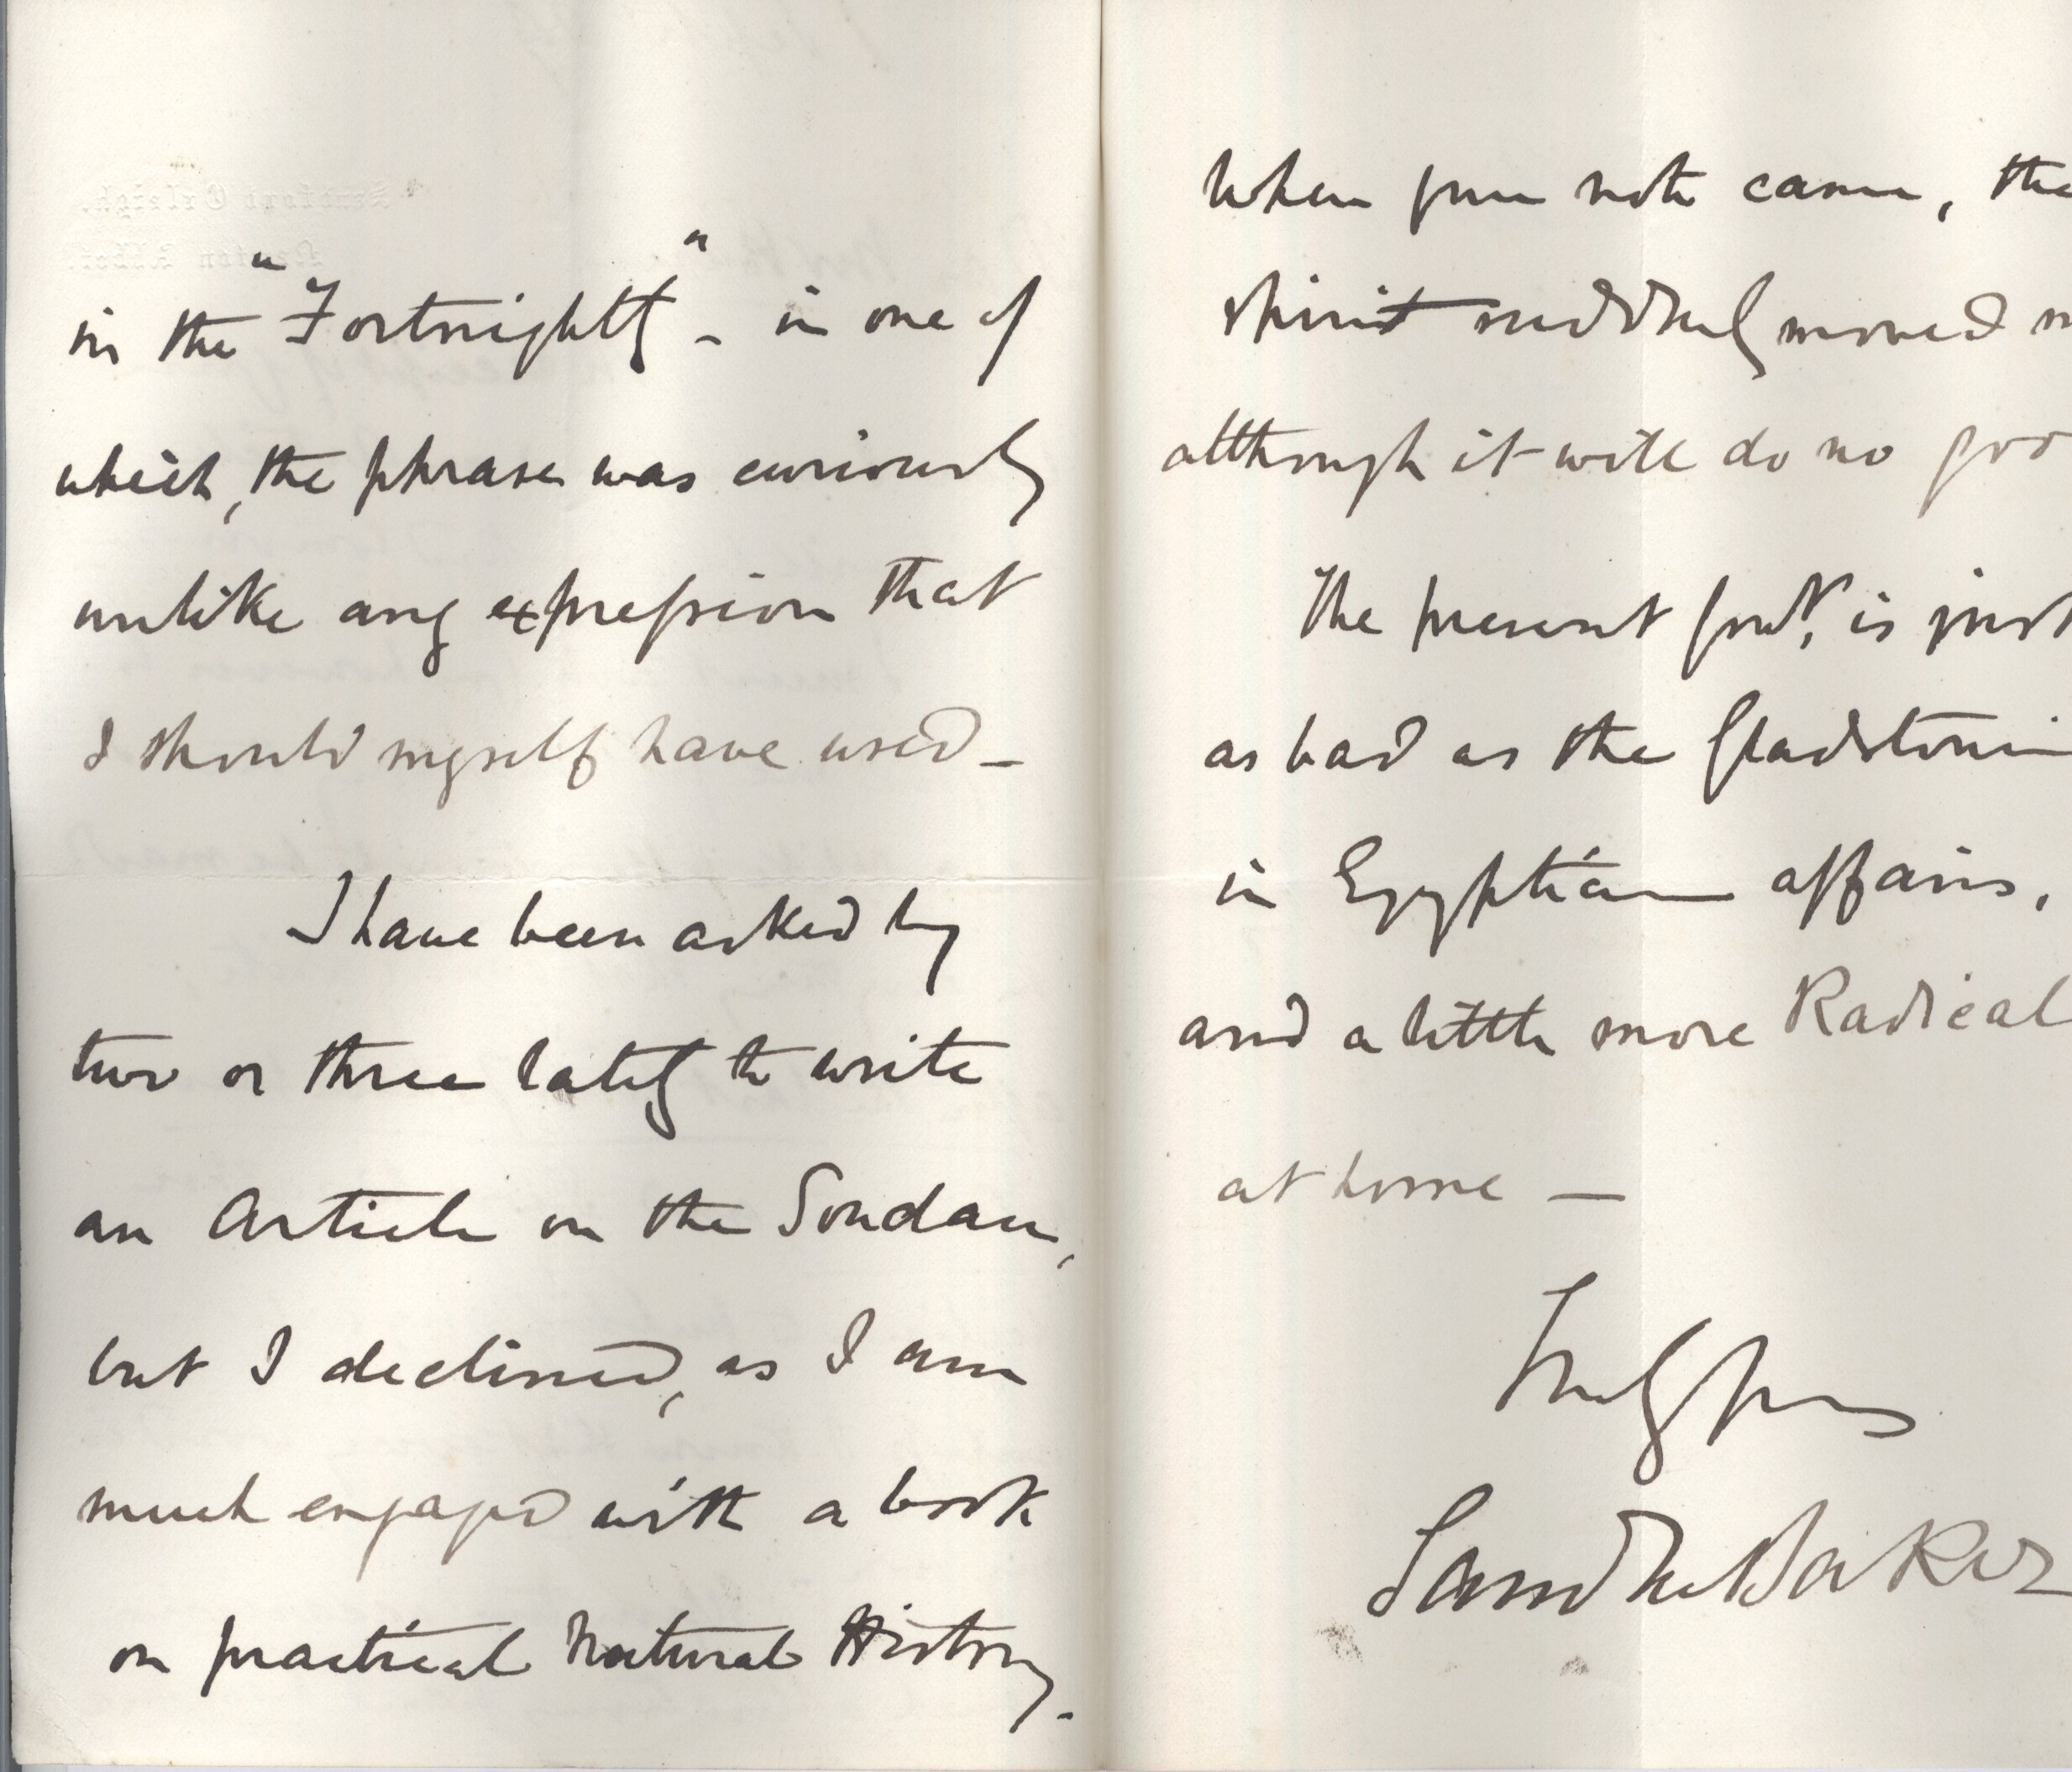 in the "Fortnightly" - in one of
which, the phrase was curiously
unlike any expression that
I should myself have used -
I have been asked by
two or three lately to write
an Article on the Soudan,
but I declined, as I am
much engaged with a book
on practical Natural History.
When your note came, the
spirit suddenly moved m
although it will do no goo
The present Govt. is just
as bad as the Gladstoni
in Egyptian affairs,
and a little more Radical
at home —
Truly yours
Saml W Baker